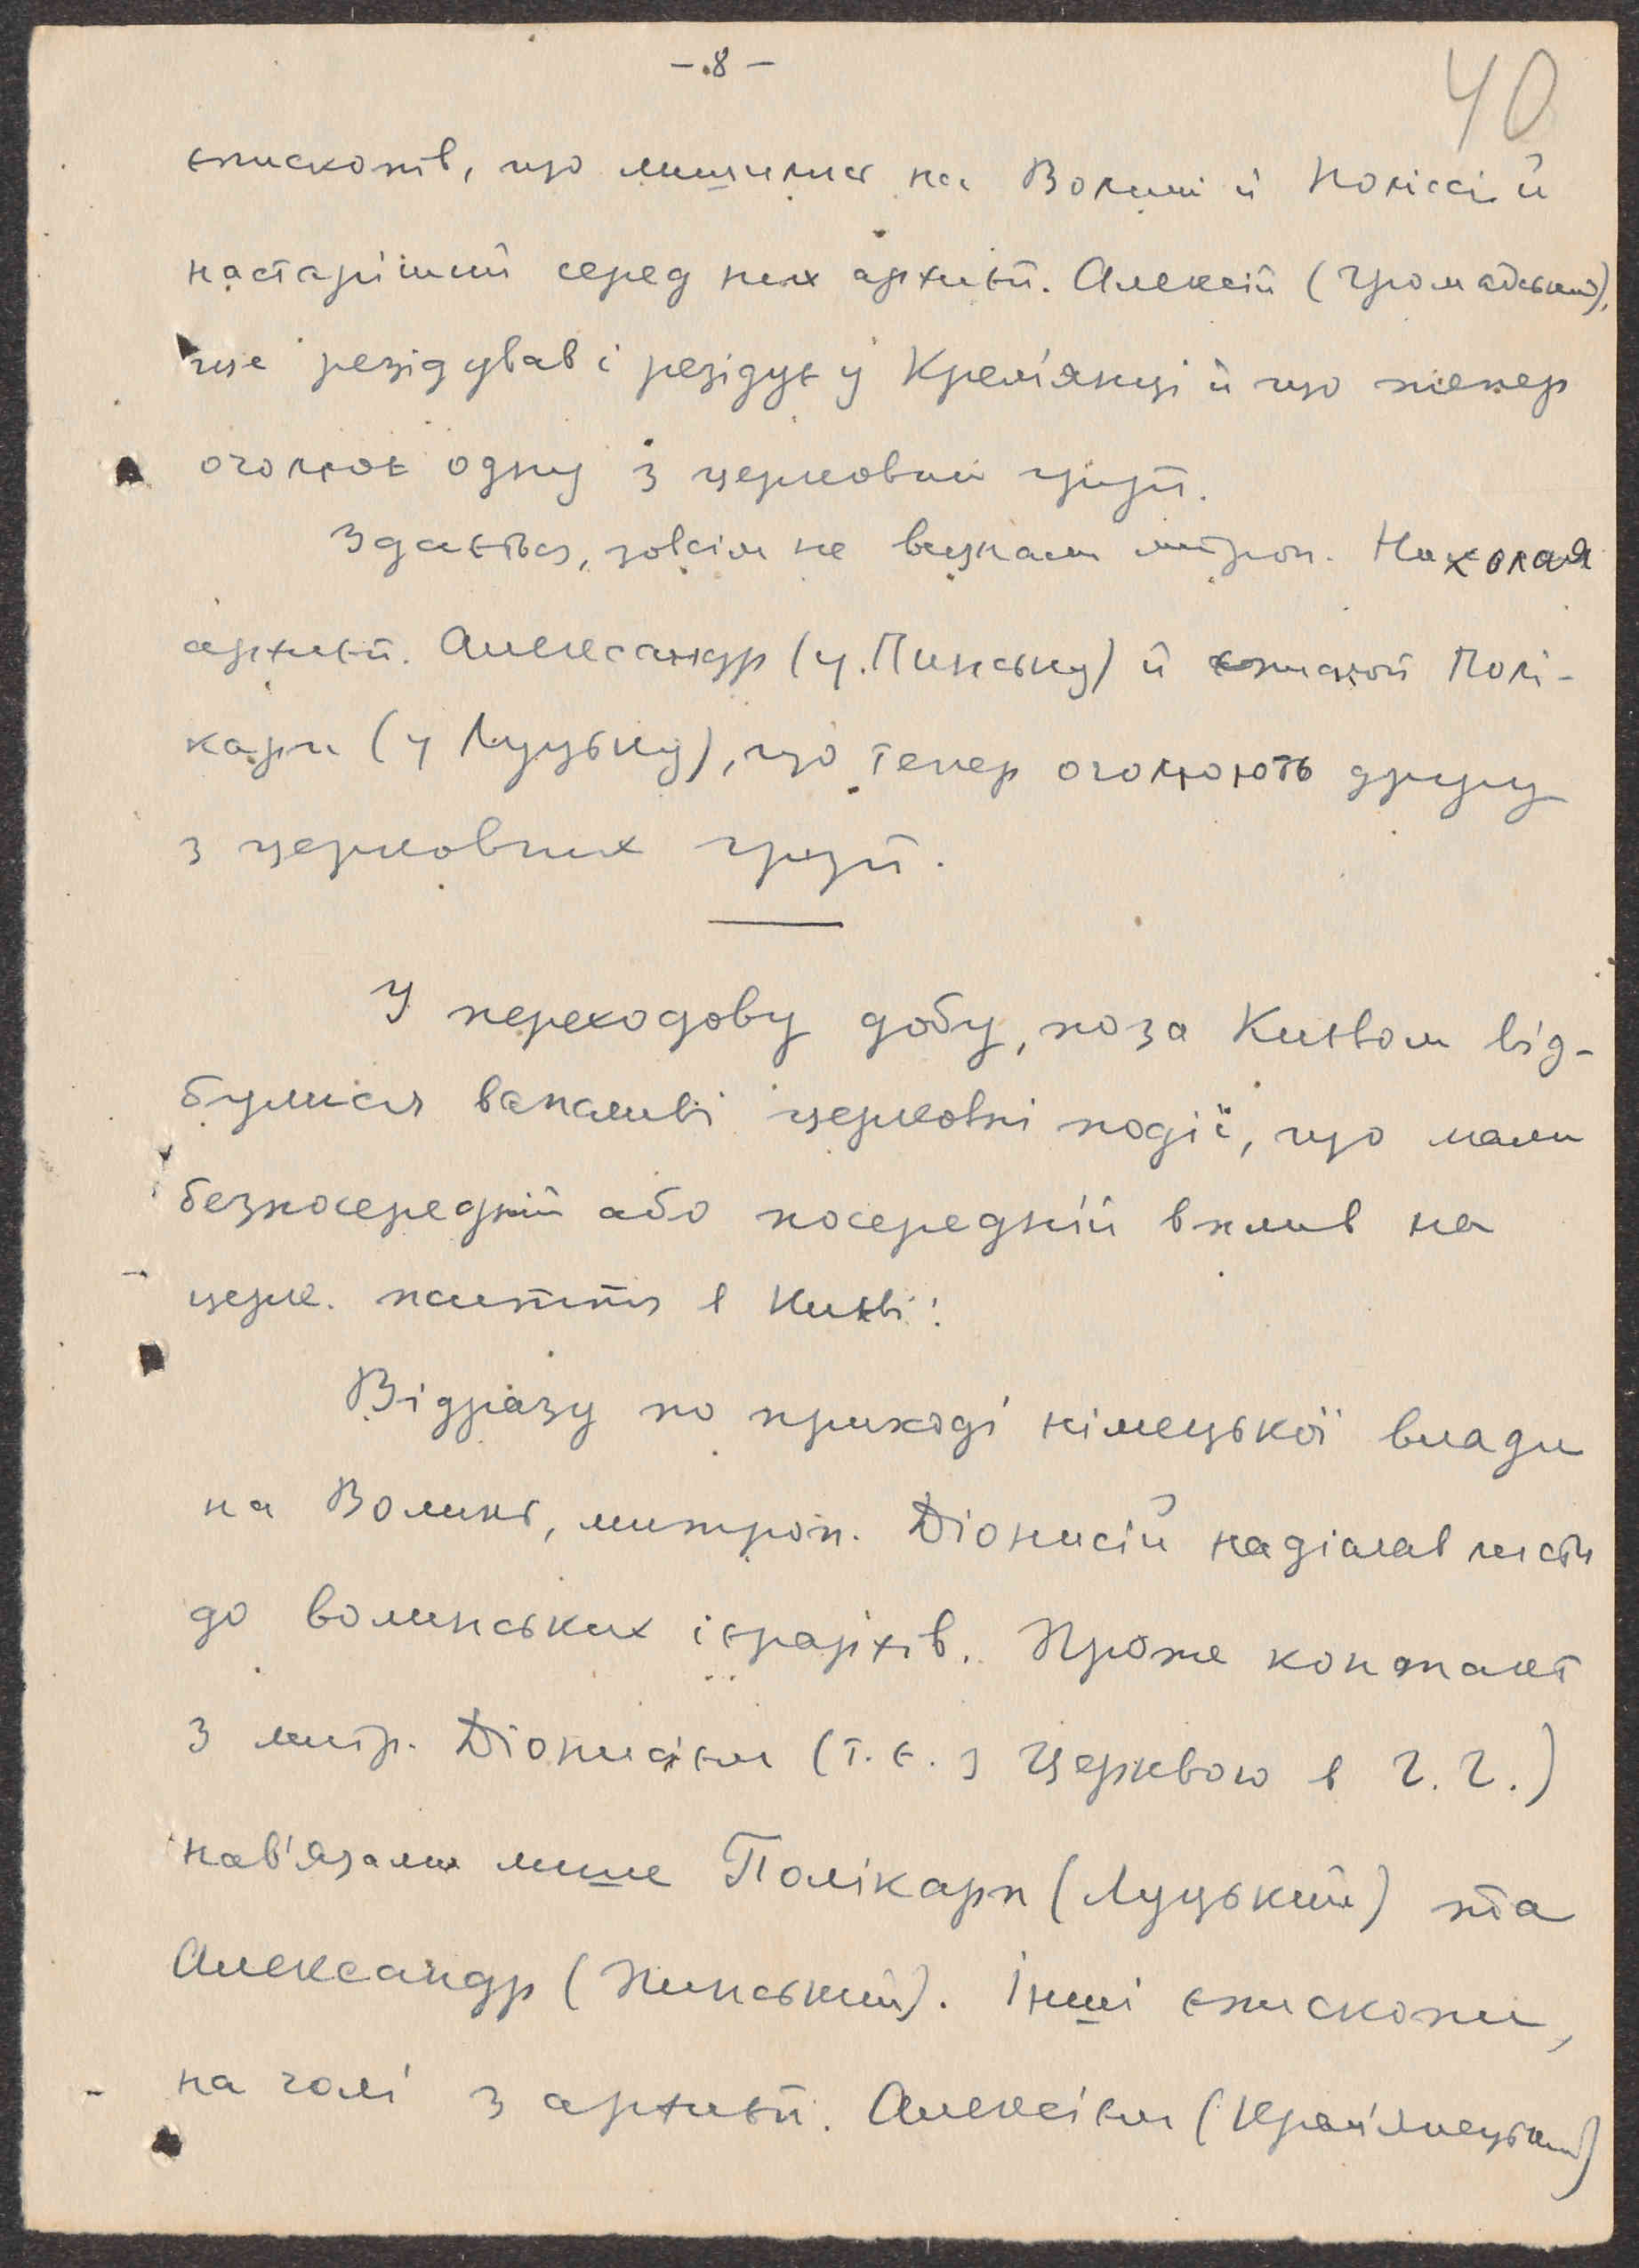 - 8 -
40
єпископів, що лишились на Волині й Поліссі й
настаріший серед них архиєп. Алексій (Громадський),
що резідував і резідує у Крем'янці й що тепер
очолює одну з церковних груп.
Здається, зовсім не визнали митроп. Николая
архиєп. Александр (у Пинську) й єпископ Полі-
карп (у Луцьку), що тепер очолюють другу
з церковних груп.
У переходову добу, поза Києвом від-
булися важливі церковні події, що мали
безпосередній або посередній вплив на
церк. життя в Києві:
Відразу по приході німецької влади
на Волинь, митроп. Діонисій надіслав листи
до волинських ієрархів. Проте контакт
з митр. Діонисієм (т.є. з Церквою в Г.Г.)
нав'язали лише Полікарп (Луцький) та
Александр (Пинський). Інші єпископи,
на чолі з архиєп. Алексієм (Крем'янецький)